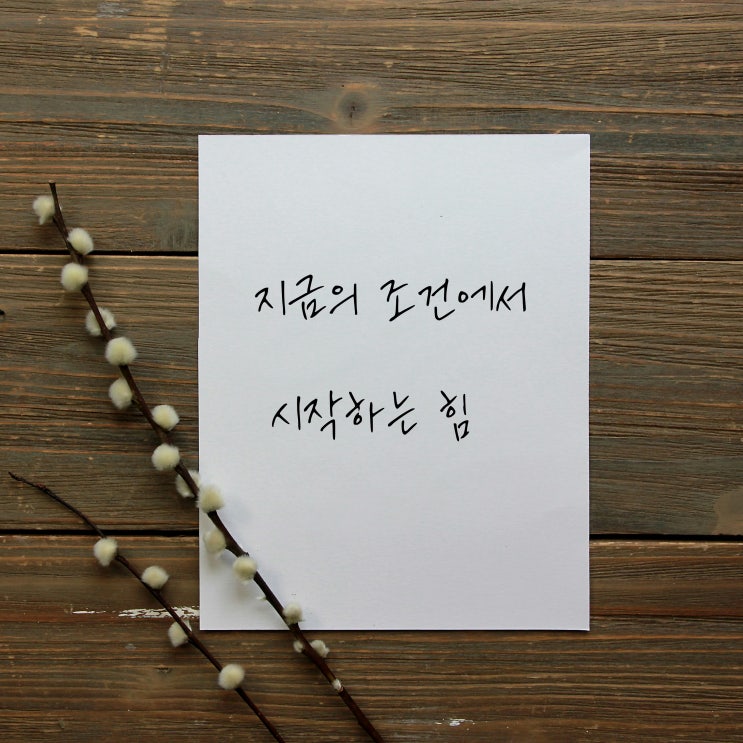 지금의 조건에서
시작하는 힘